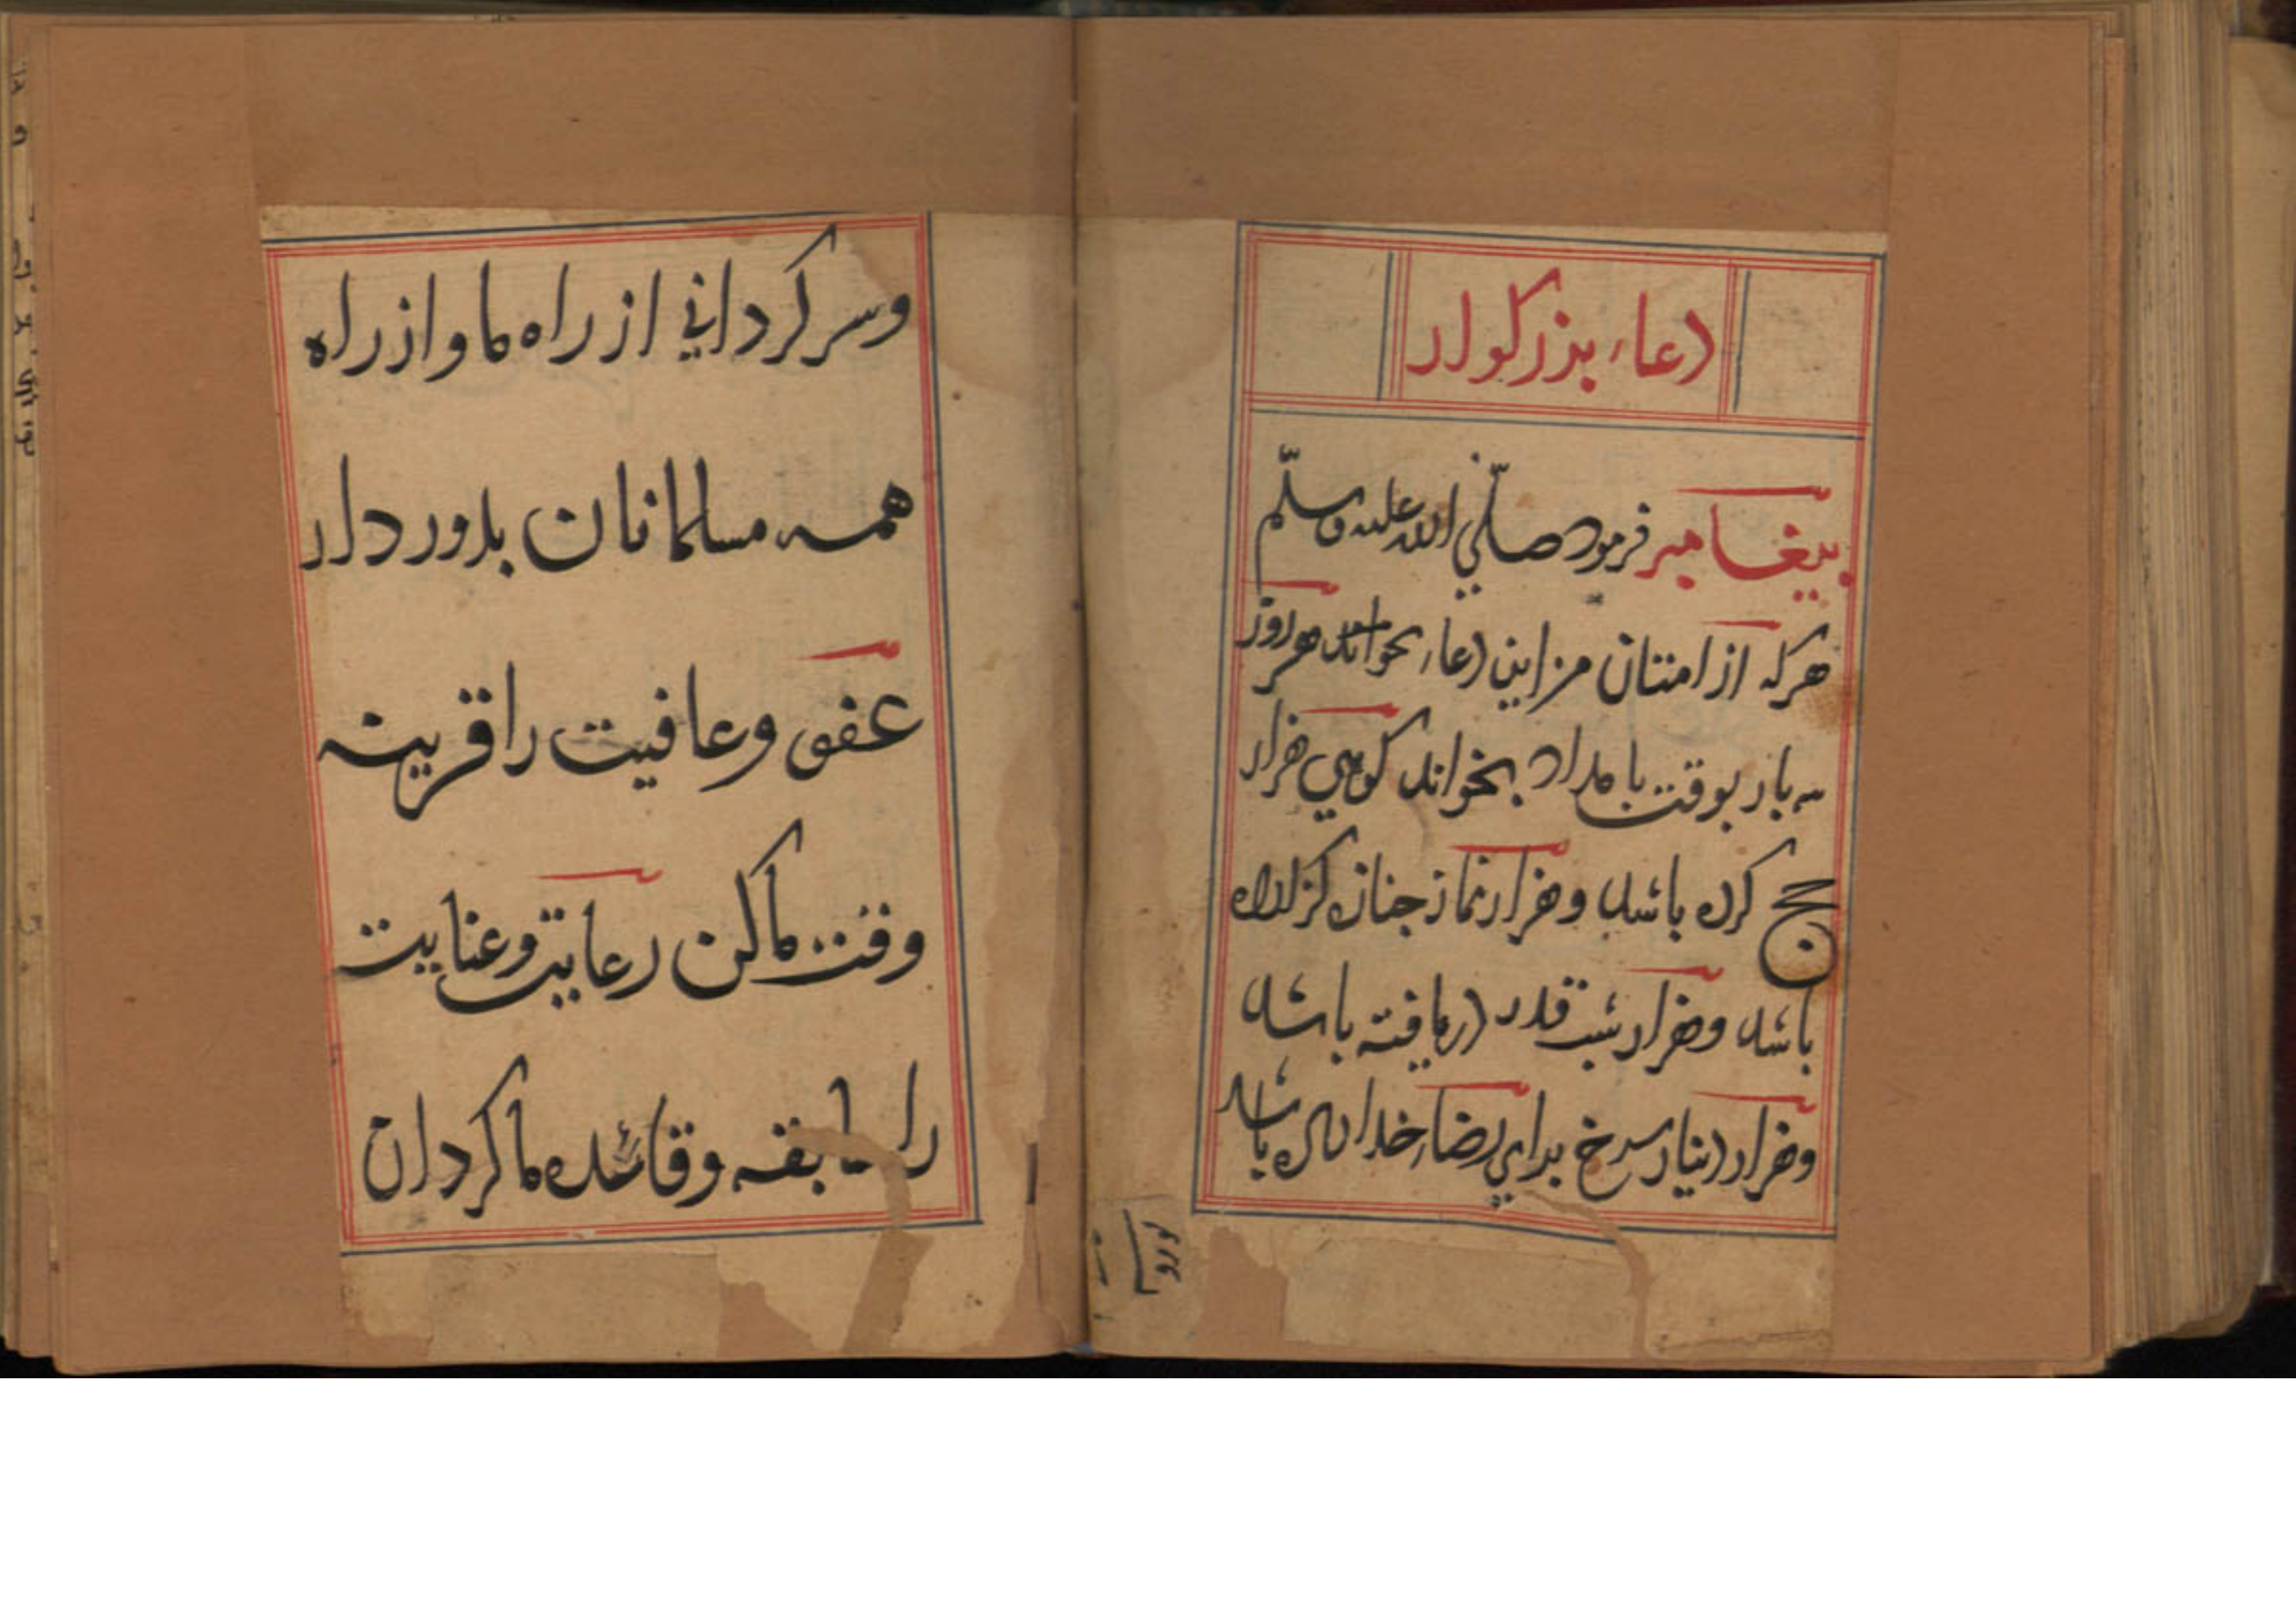 دعاء بزرکوار
بیغامبر فرمود صلّي الله علیه وسلّم
هرکه از امتان من این دعاء بخواند هر روز
سه بار بوقت بامداد بخواند کوهی هزار
حج کرده باشد وهزار نماز جنازه کزارده
باشد وهزار شب قدر دریافته باشد
وهزار دینار سرخ برای رضاء خدا داده باشد
وسرکرداني از راه ما و از راه
همه مسلمانان بدور دار
عفو وعافیت را قرینه
وقت ما کن رعایت وعنایت
را سابقه وقائده ما کردان